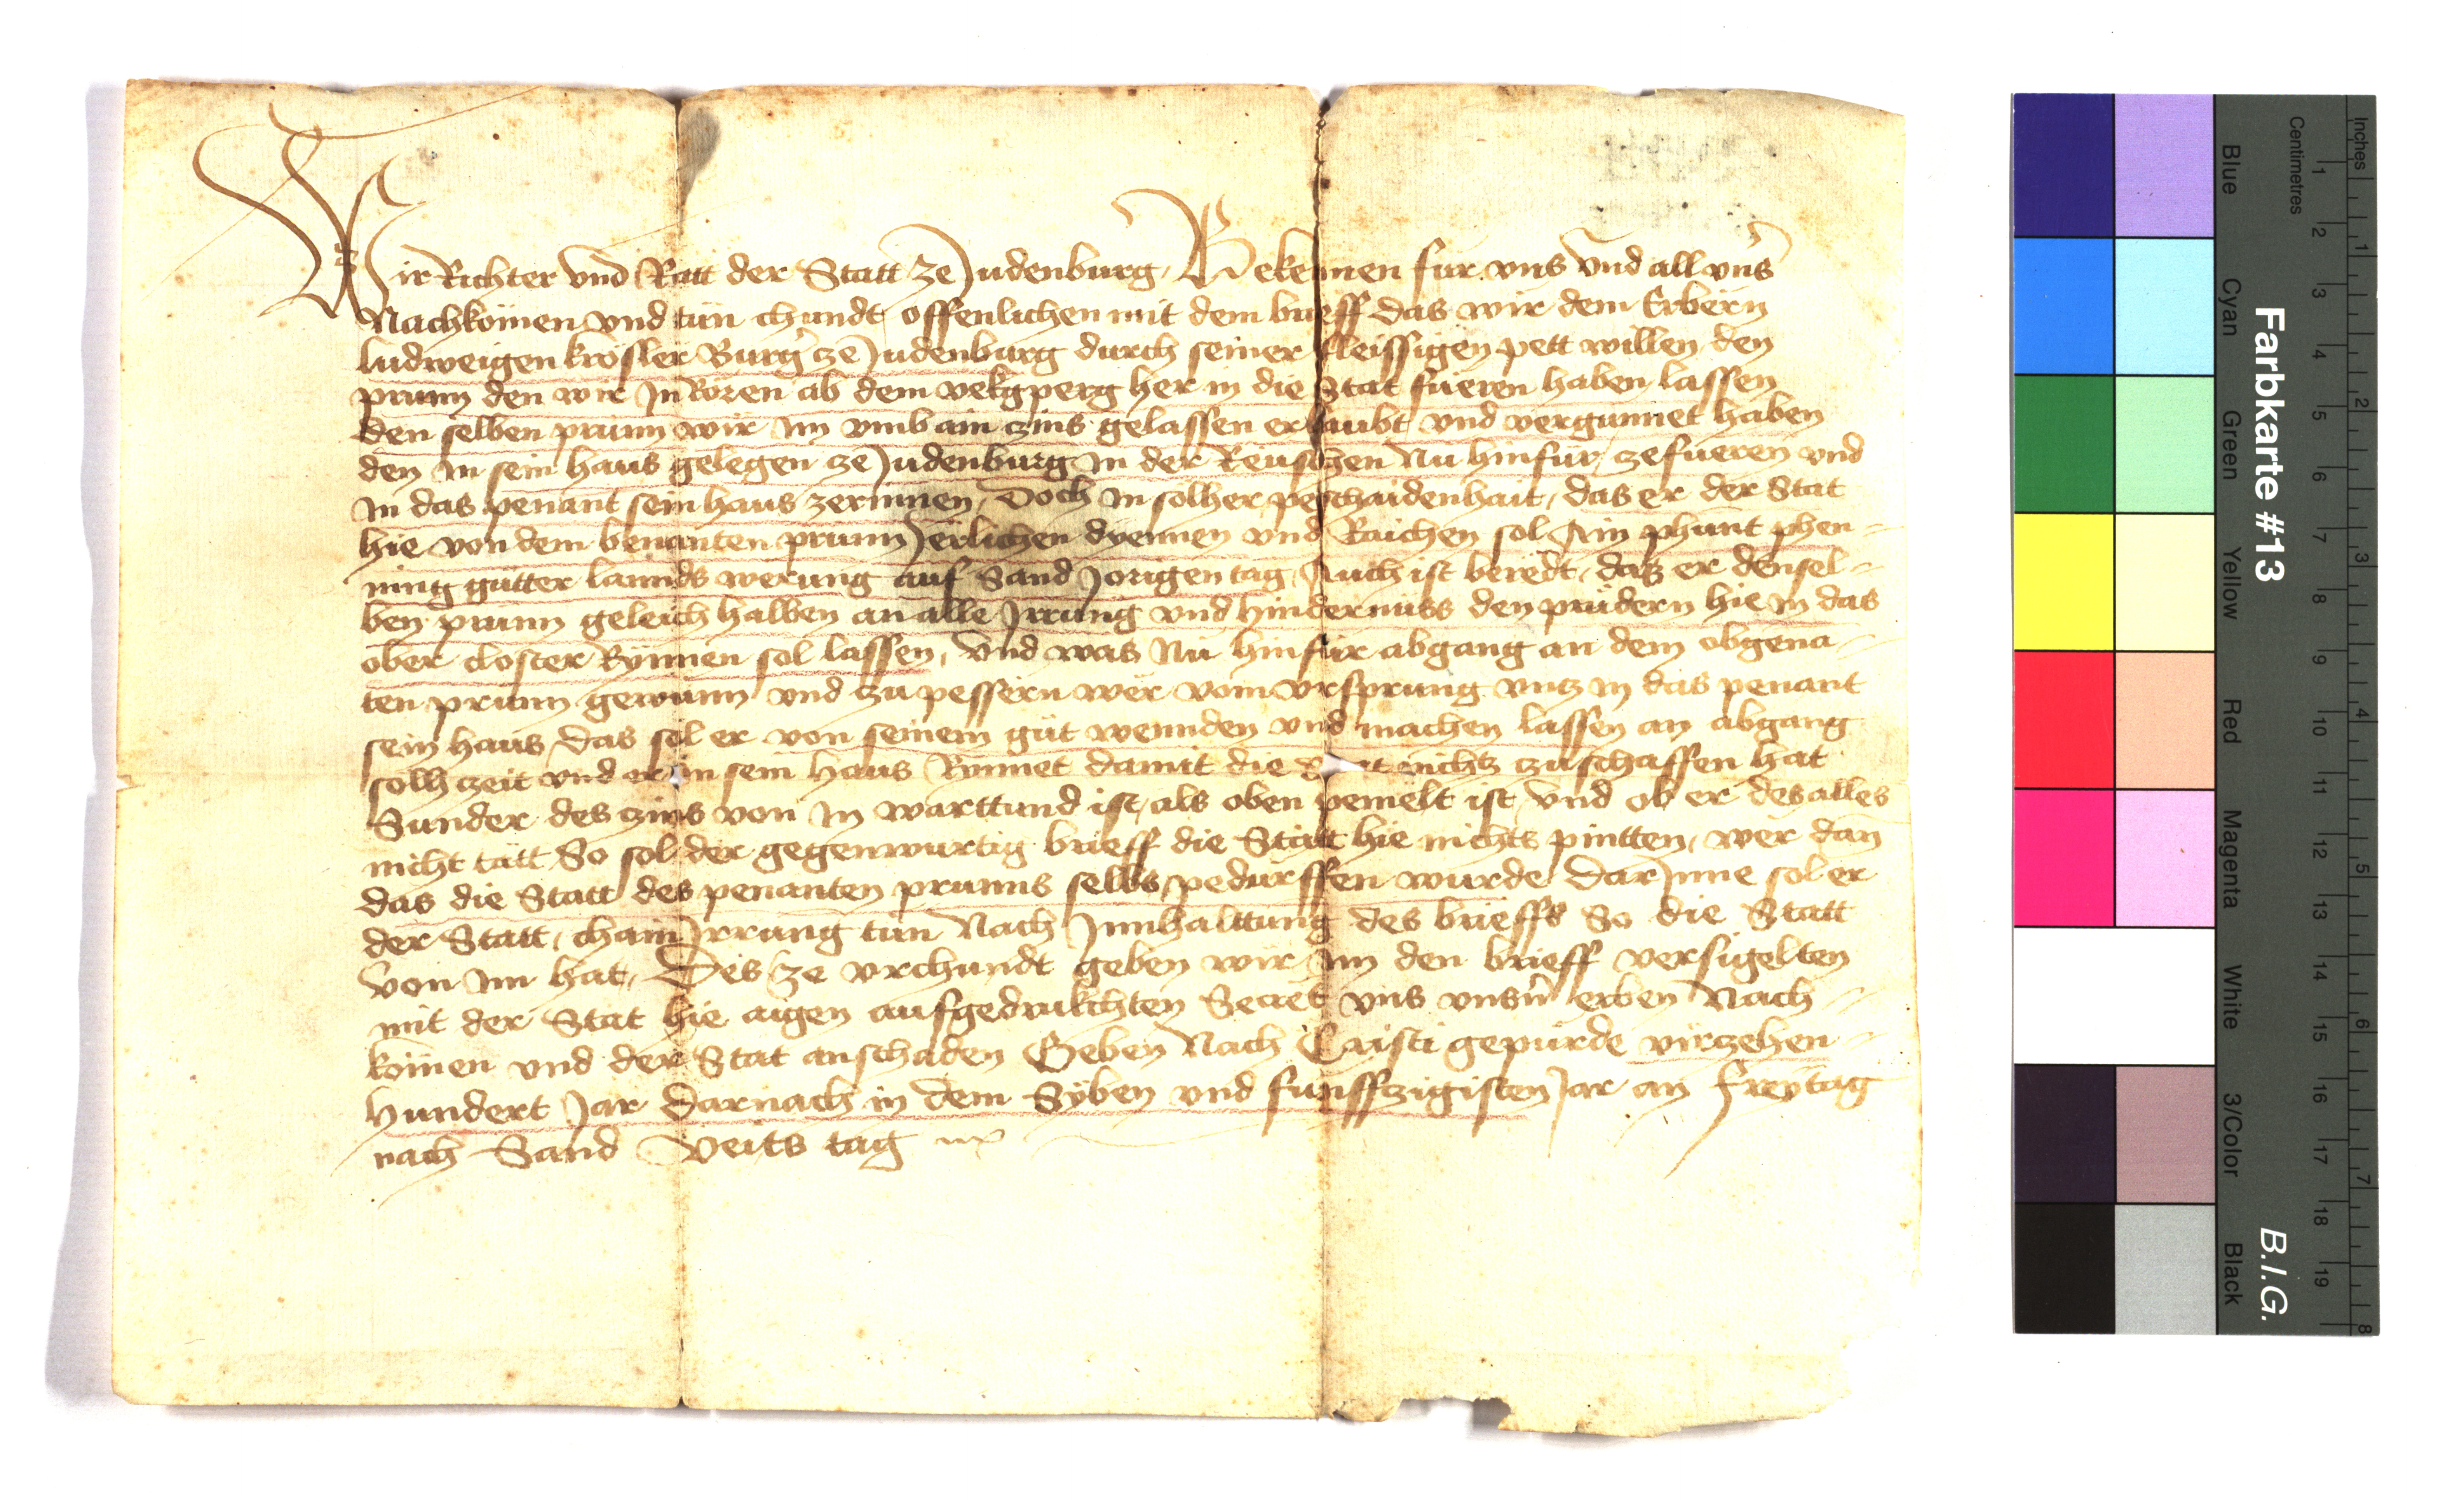 Wir Richter vnd Ratt der Statt ze Judenburg, Bekennen fur vns vnd all vnser
Nachkömen vnd tün chundt offenlichen mit dem brieff das wir dem Erbern
ludweigen krösler Burger ze Judenburg durch seiner fleissigen pett willen den
prunn den wir In Rören ab dem vekgperg her in die Stat füeren haben lassen
den selben prunn wir Im vmb ain zins gelassen erlaubt vnd vergunnet haben
den in sein haus gelegen ze Judenburg in der Reuschen Nu hinfür zefüeren vnd
in das penant sein haus zerinnen, Doch in solher peschaidenhait, das er der Stat
hie von dem benanten prunn Jerlichen dyennen vnd Raichen sol Ain phunt phen-
ning gütter lannds werung auf Sand Jorigen tag, Auch ist beredt, daz er densel-
ben prunn geleich halben an alle Irrung vnd hindernüss den prüdern hie in das
ober closter Rynnen sol lassen, vnd was Nü hinfür abgang an dem obgena-
ten prunn gewunn vnd zu pessern wer vom vrsprung vntz in das penant
sein haus, das sol er von seinem güt wennden vnd machen lassen an abgang
solh zeit vnd er in sein haus Rynnet damit die nichtz zuschaffen hat
Sunder des zins von in warttund ist, als oben pemelt ist vnd ob er des alles
nicht tätt So sol der gegenwurtig brieff die Statt hie nichts pintten, wer dan
das die Statt des penanten prunns selbs pedürffen wurde DarInne sol er
der Statt, chain Irrung tün Nach Innhalttung des brieffs So die Statt
von im hat, Des ze vrchundt geben wir im den brieff versigelten
mit der Stat hie aigen aufgedrukchten Secret vns vnsern erben Nach-
kömen vnd der Stat anschaden Geben Nach Cristi gepürde virzehen-
hundert Jar Darnach in dem Syben vnd funffzigisten Jar an Freytag
nach Sand Veits tag
Farbkarte #13
B.I.G.
Inches
Centimetres
1 2 3 4 5 6 7 8
1 2 3 4 5 6 7 8 9 10 11 12 13 14 15 16 17 18 19
Blue
Cyan
Green
Yellow
Red
Magenta
White
3/Color
Black